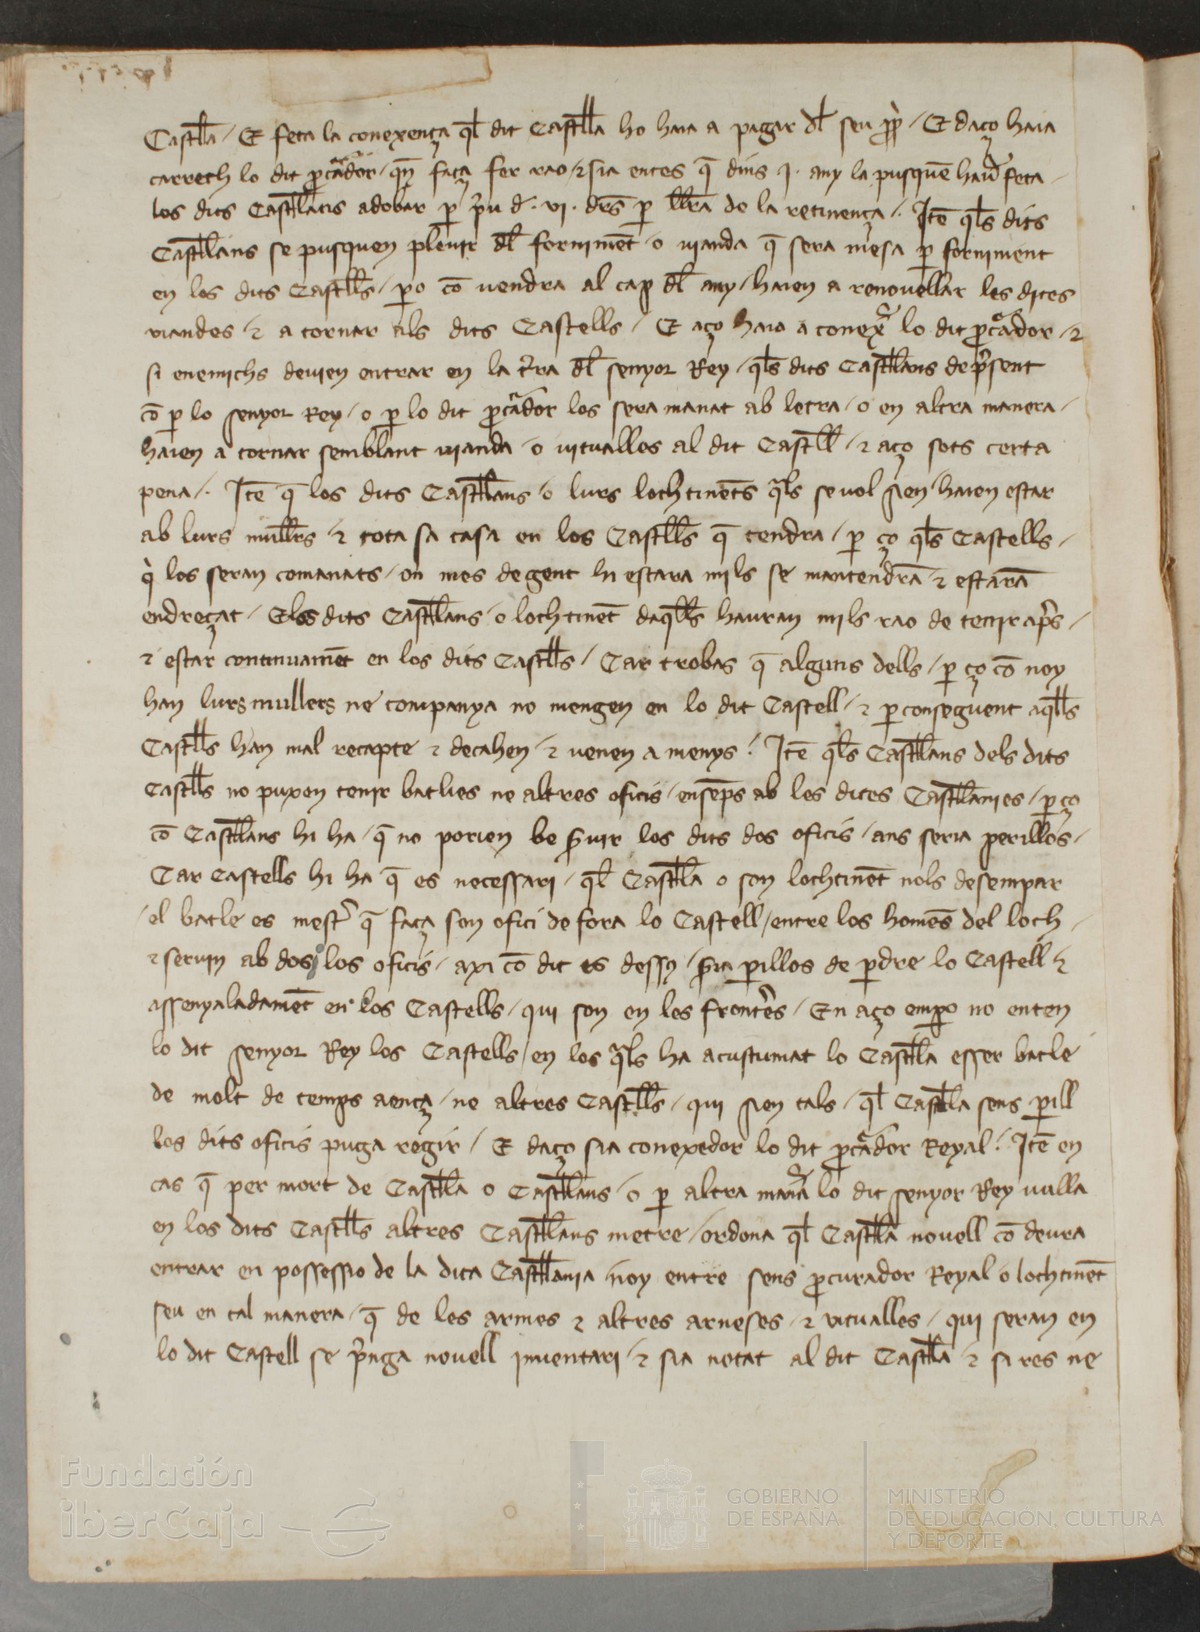 Castl̄la / E feta la conexença ql̄ dit Castl̄la ho haia a pagar dl̄ seu pp̄ / E daço haia
carrech lo dit pcādor / qn̄ faça fer rao / ⁊ sia entes q̄ dins j. any la pusquē hauer feta /
los dits Castl̄lans adobar p̱ p̄u d. vi. drs̄ p̱ ll̄ra de la retinença / . Itē ql̄s dits
Castl̄lans se pusquen plenir dl̄ fornimēt / o vianda q̄ sera mesa p̱ forniment
en los dits Castl̄ls / p̱o cō vendra al cap dl̄ any / haien a renouellar les dites
viandes / ⁊ a tornar als dits Castells / E aço haia a conex̄ lo dit pcādor / ⁊
si enemichs deuien entrar en la t̄ra dl̄ senyor Rey / ql̄s dits Castl̄lans de p̄sent
cō p̱ lo senyor Rey / o p̱ lo dit pcādor los sera manat ab letra / o en altra manera /
haien a tornar semblant vianda / o vitualles al dit Castl̄l / ⁊ aço sots certa
pena / . Itē q̄ los dits Castl̄lans / o lurs lochtinēts q̄ls se vol sien / haien estar
ab lurs mull̄rs / ⁊ tota sa casa en los Castl̄ls q̄ tendra / p̱ ço ql̄s Castells /
q̄ los seran comanats / on mes de gent hi estara mils se mantendrā ⁊ estarā
endreçat / Els dits Castl̄lans / o lochtinēt daql̄ls hauran mils rao de tenir ap̄s /
⁊ estar continuamēt en los dits Castl̄ls / Car trobas q̄ alguns dells / p̱ ço cō noy
han lurs mullers ne companya no mengen en lo dit Castell / ⁊ p̱ conseguent aql̄ls
Castl̄ls han mal recapte ⁊ decahen / ⁊ venen a menys / . Itē ql̄s Castl̄lans dels dits
Castl̄ls no puxen tenir batlies ne altres oficis / ensēps ab les dites Castl̄lanies / p̱ ço
cō Castl̄lans hi ha / q̄ no porien be s̄uir los dits dos oficis / ans seria perillos /
Car Castells hi ha q̄ es necessari / ql̄ Castl̄la o son lochtinēt nols desempar
/ el batle es mest̄ q̄ faça son ofici de fora lo Castell / entre los homēs del loch /
⁊ seruin ab dos los oficis / axi cō dit es dessꝰ / s̄ia p̱illos de p̱dre lo Castell / ⁊
assenyaladamēt en los Castells / qui son en les front̄es / En aço emp̱o no enten
lo dit senyor Rey los Castells / en los q̄ls ha acustumat lo Castl̄la esser batle
de molt de temps aença / ne altres Castl̄ls / qui sien tals / ql̄ Castl̄la sens p̱ill
los dits oficis puga regir / E daço sia conexedor lo dit pcādor Reyal / . Itē en
cas q̄ per mort de Castl̄la o Castl̄lans / o p̱ altra man̄a lo dit senyor Rey vulla
en los dits Castl̄ls altres Castl̄lans metre / ordona ql̄ Castl̄la nouell cō deura
entrar en possessio de la dita Castl̄lania / noy entre sens p̱curador Reyal o lochtinēt
seu en tal manera / q̄ de les armes ⁊ altres arneses / ⁊ vitualles / qui seran en
lo dit Castell se p̄nga nouell jnuentari / ⁊ sia notat al dit Castl̄la ⁊ si res ne
Fundación
iberCaja
GOBIERNO
DE ESPAÑA
MINISTERIO
DE EDUCACIÓN, CULTURA
Y DEPORTE